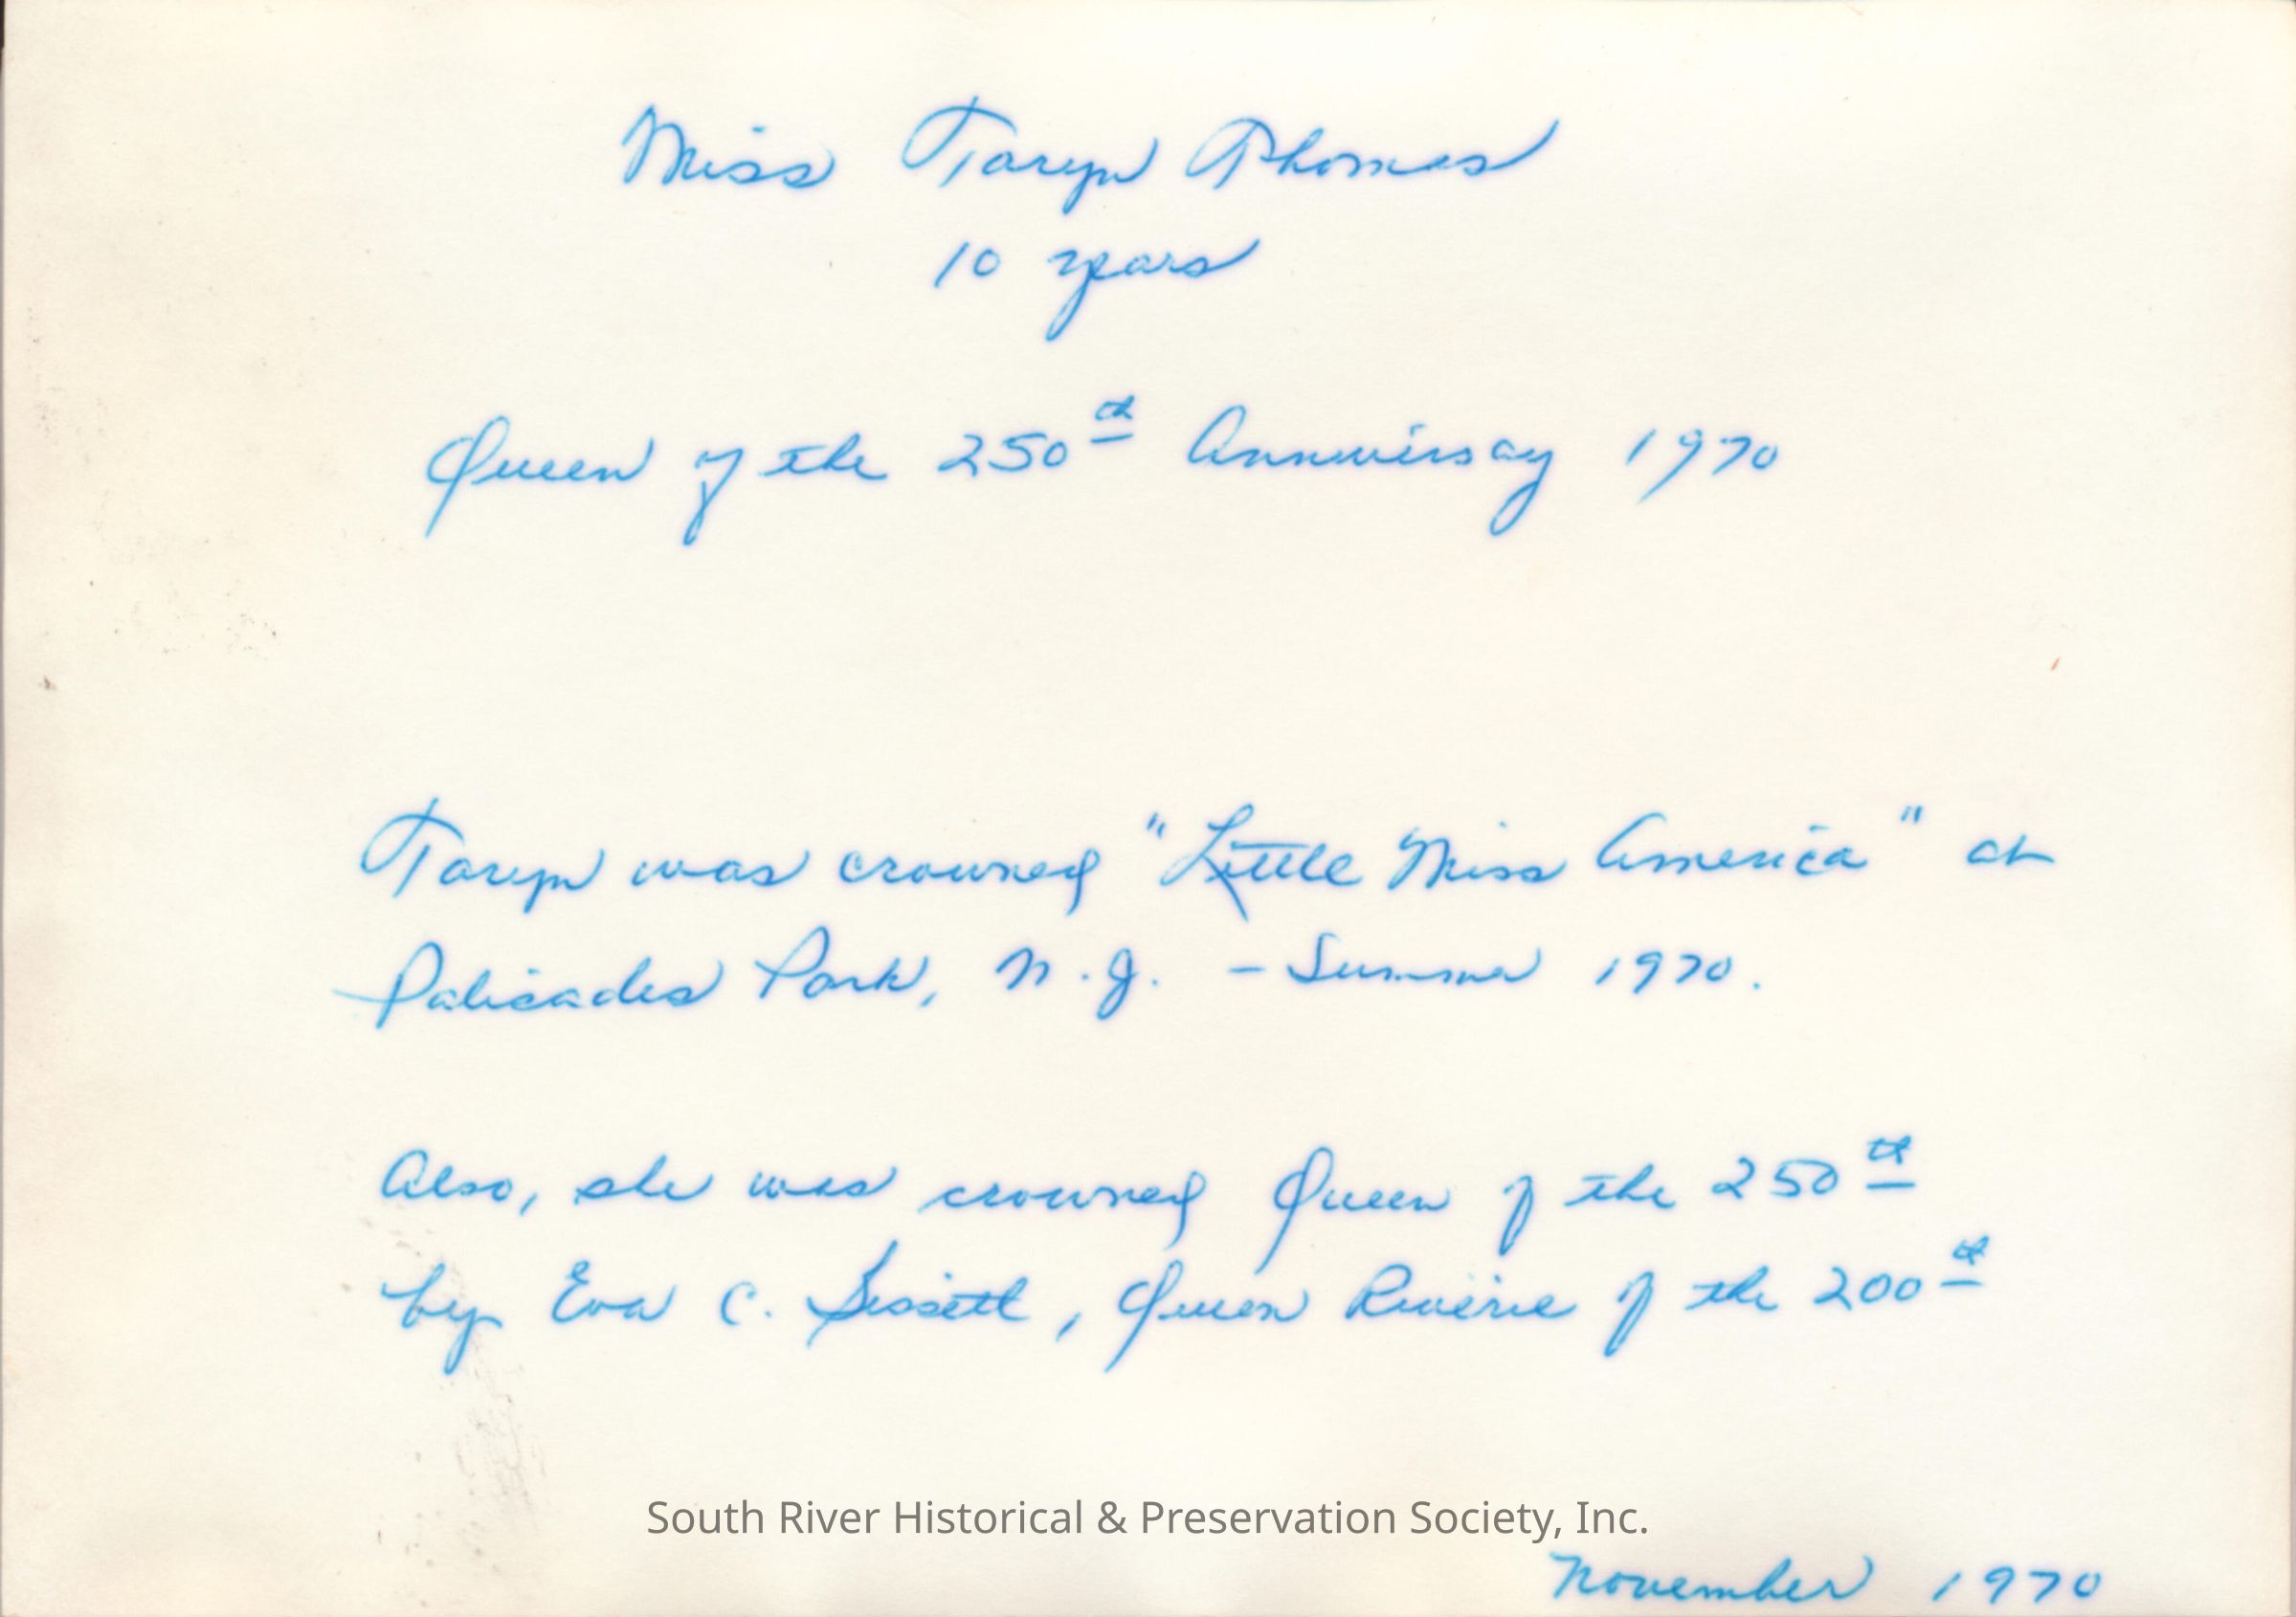 Miss Taryn Thomas
10 years
Queen of the 250th Anniversay 1970
Taryn was crowned "Little Miss America" at
Palisades Park, N.J. - Summer 1970.
Also, she was crowned Queen of the 250th
by Eva C. , Queen of the 200th
South River Historical & Preservation Society, Inc.
November 1970